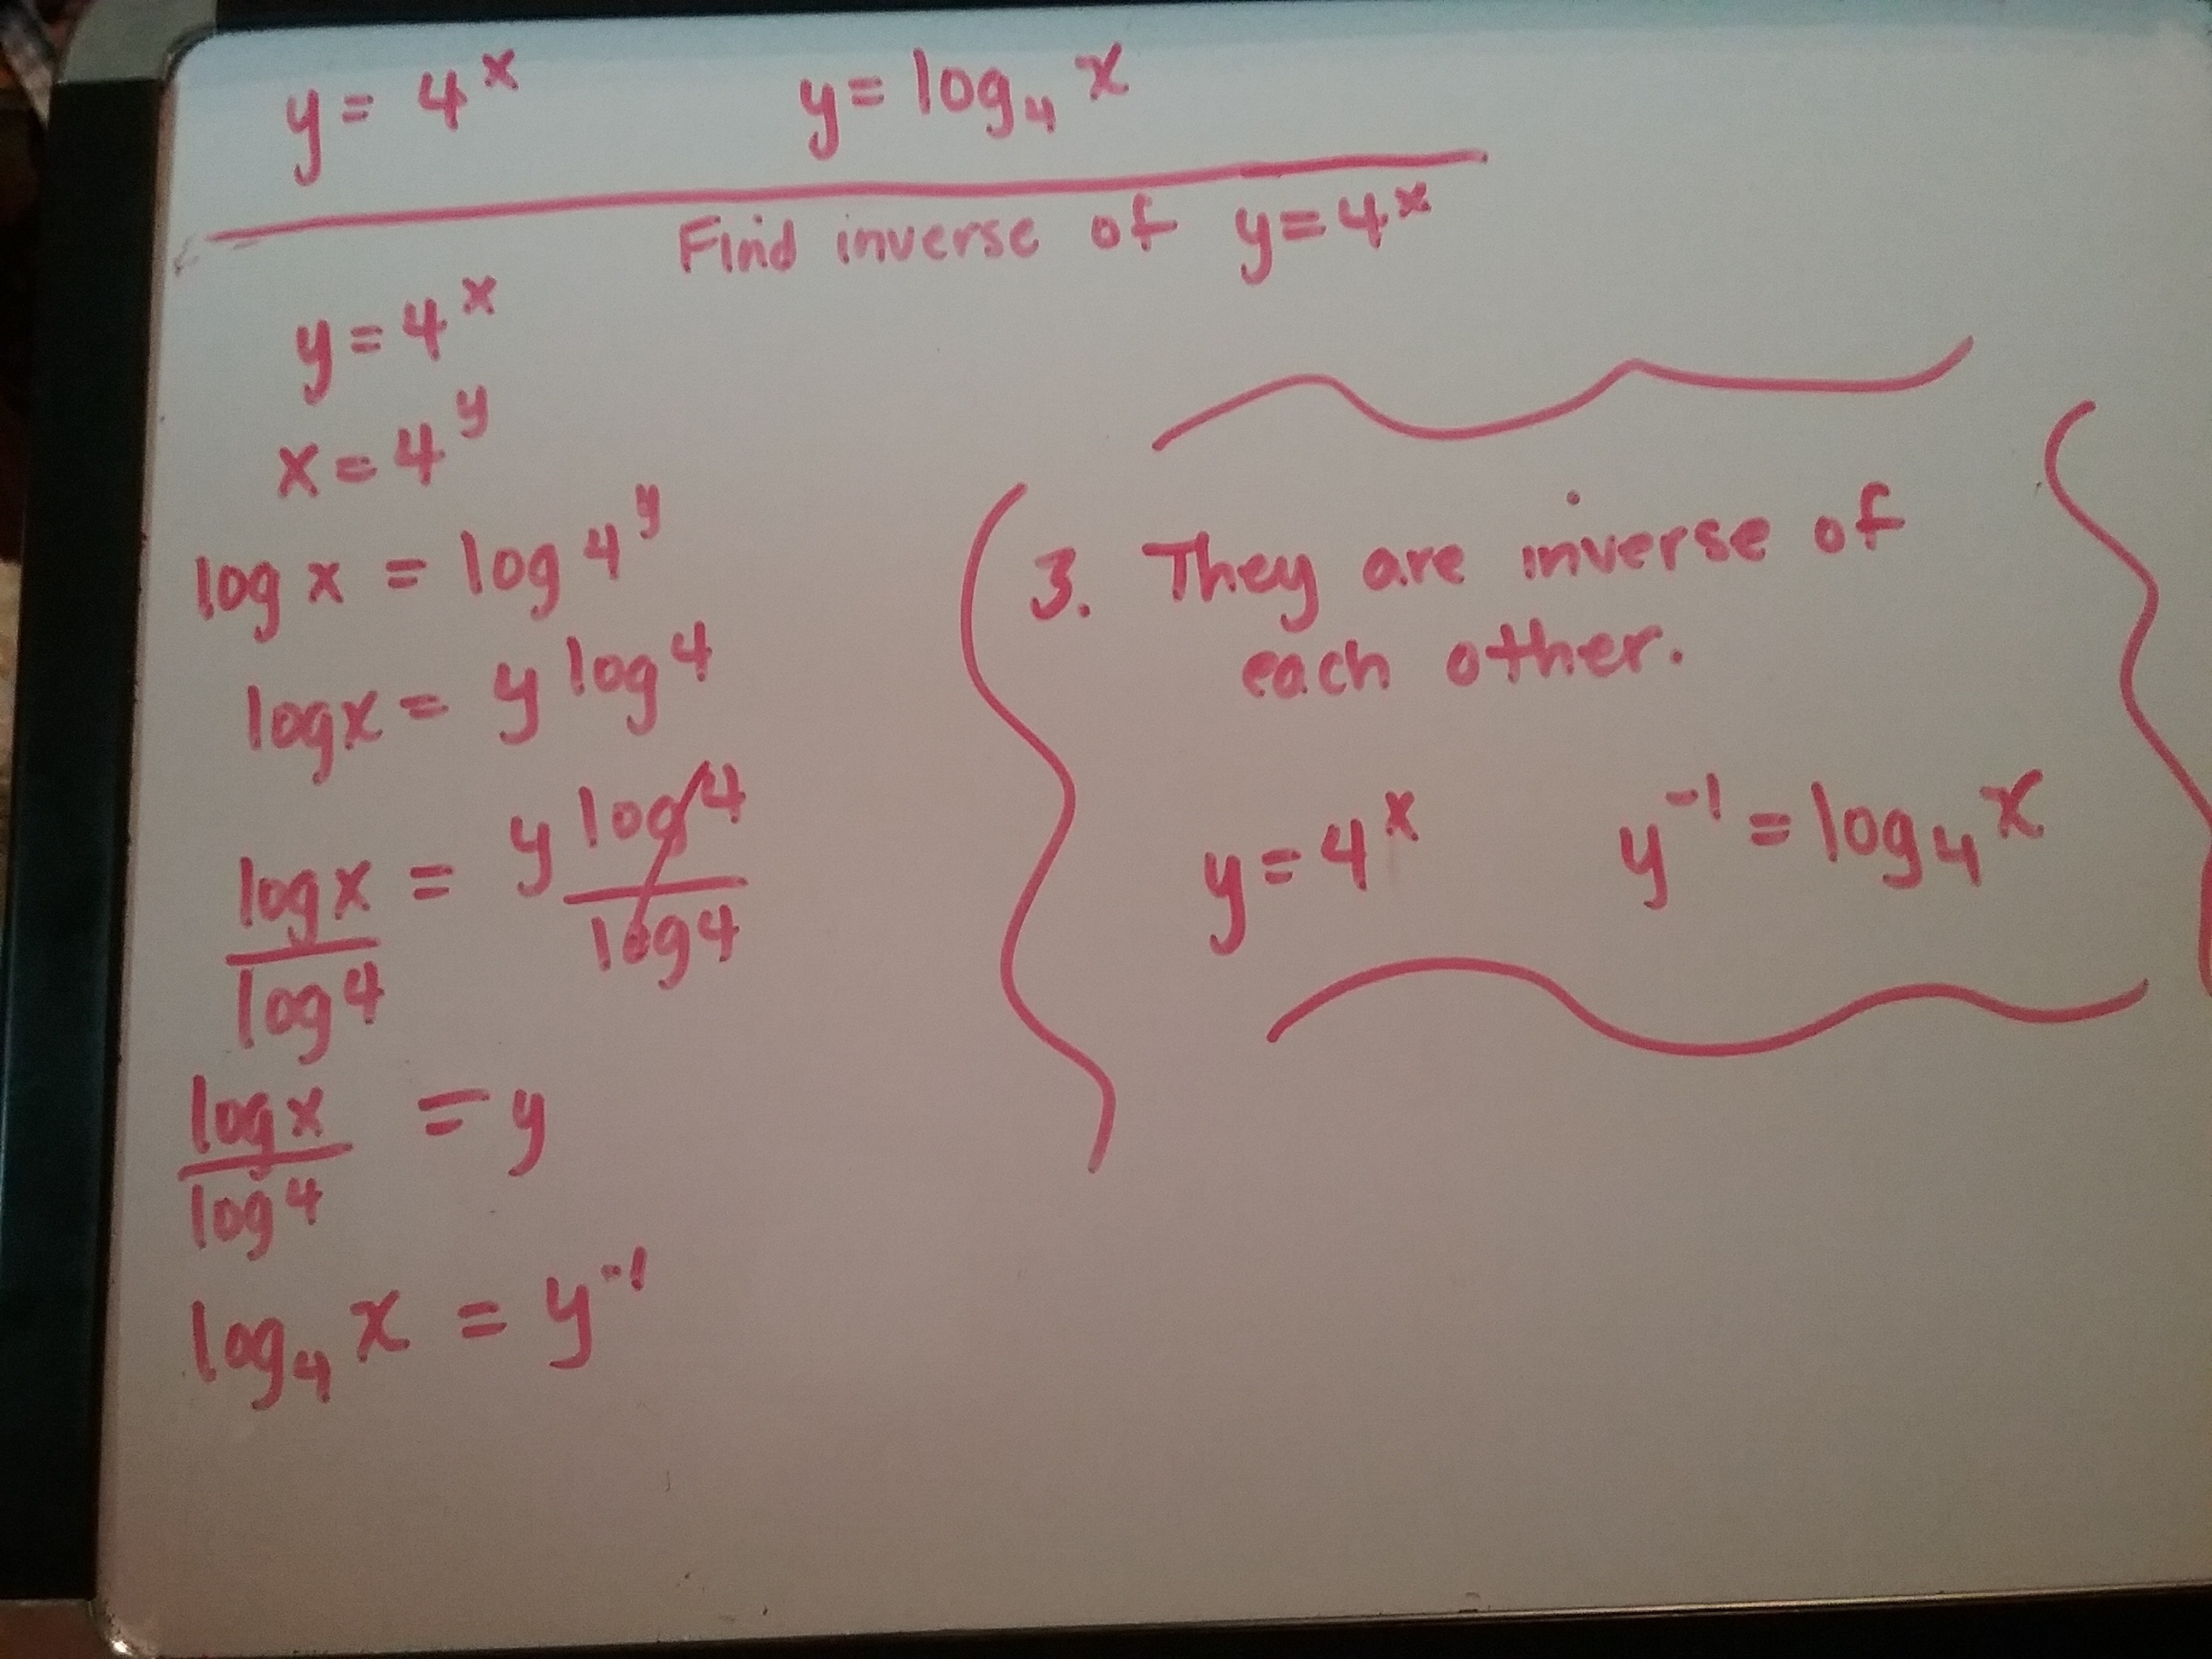 y = 4^x    y = log₄ x
Find inverse of y = 4^x
y = 4^x
x = 4^y
log x = log 4^y
log x = y log 4
log x / log 4 = y log 4 / log 4
log x / log 4 = y
log₄ x = y⁻¹
3. They are inverse of
each other.
y = 4^x    y⁻¹ = log₄ x